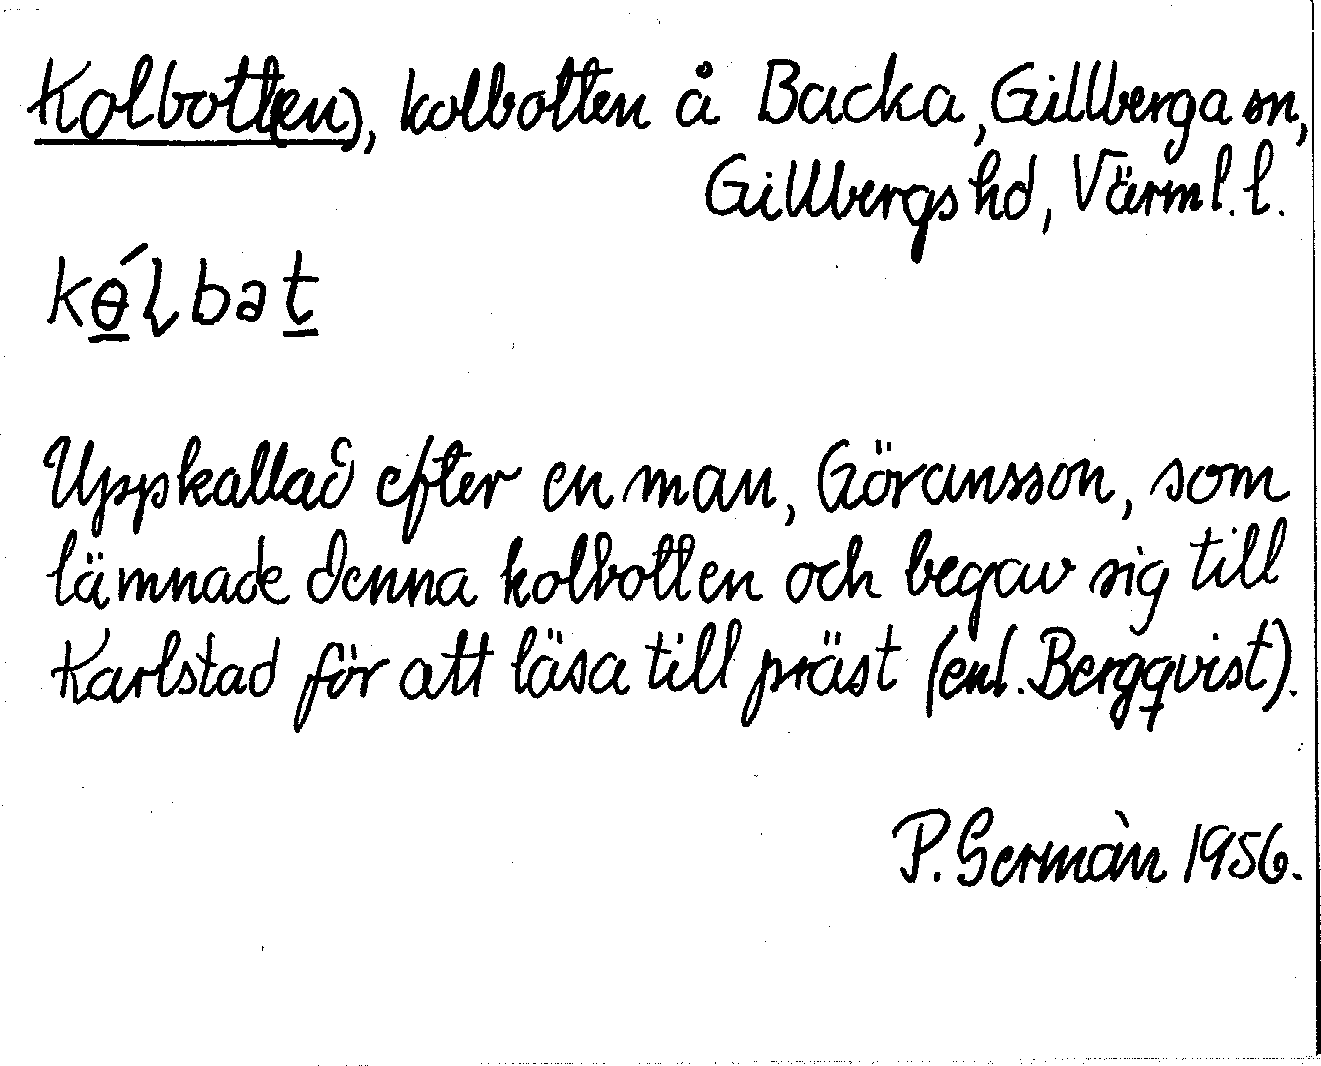 Kolbott(en), kolbotten å Backa, Gillberga sn,
Gillbergs hd, Värml. l.
kǿɽbat
Uppkallad efter en man, Göransson, som
lämnade denna kolbotten och begav sig till
Karlstad för att läsa till präst (enl. Bergqvist).
P. Germàn 1956.